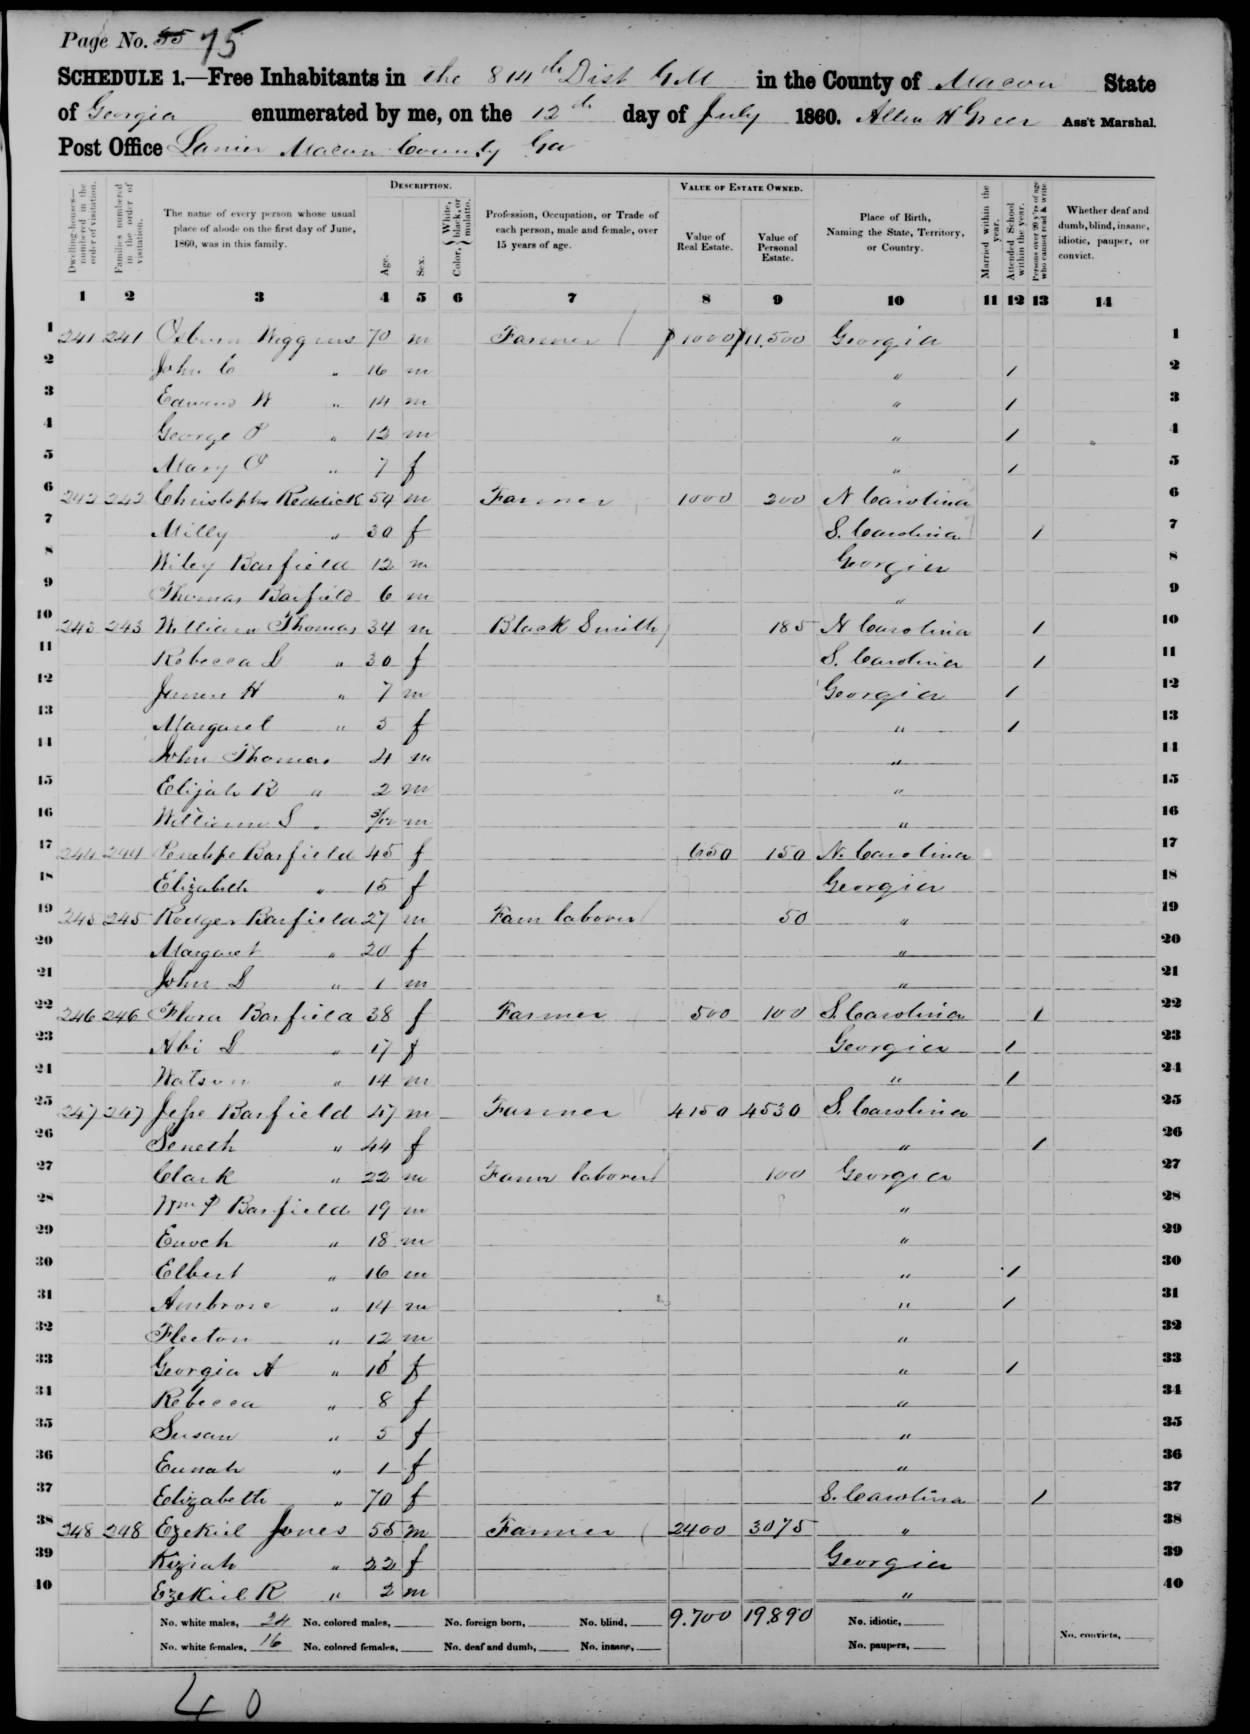 Page No. 55 75
SCHEDULE 1.—Free Inhabitants in the 814th Dist GM in the County of Macon State
of Georgia enumerated by me, on the 12th day of July 1860. Allen H Greer Ass't Marshal.
Post Office Lanier Macon County Ga
Dwelling-houses—numbered in the order of visitation.
Families numbered in the order of visitation.
The name of every person whose usual place of abode on the first day of June, 1860, was in this family.
DESCRIPTION.
Age.
Sex.
Color, White, black, or mulatto.
Profession, Occupation, or Trade of each person, male and female, over 15 years of age.
VALUE OF ESTATE OWNED.
Value of Real Estate.
Value of Personal Estate.
Place of Birth, Naming the State, Territory, or Country.
Married within the year.
Attended School within the year.
Persons over 20 y'rs of age who cannot read & write.
Whether deaf and dumb, blind, insane, idiotic, pauper, or convict.
1 2 3 4 5 6 7 8 9 10 11 12 13 14
1 241 241 Osburn Wiggins 70 m Farmer 1000 11,500 Georgia 1
2 John C " 16 m " 1 2
3 Edward W " 14 m " 1 3
4 George P " 12 m " 1 4
5 Mary O " 7 f " 1 5
6 242 242 Christopher Reddick 54 m Farmer 1000 200 N Carolina 6
7 Milly " 30 f S. Carolina 1 7
8 Wiley Barfield 12 m Georgia 8
9 Thomas Barfield 6 m " 9
10 243 243 William Thomas 34 m Black Smith 185 N Carolina 1 10
11 Rebecca L " 30 f S. Carolina 1 11
12 James H " 7 m Georgia 1 12
13 Margaret " 5 f " 1 13
14 John Thomas 4 m " 14
15 Elijah R " 2 m " 15
16 William S " 3/12 m " 16
17 244 244 Penelope Barfield 45 f 650 150 N. Carolina 17
18 Elizabeth " 15 f Georgia 18
19 245 245 Rodger Barfield 27 m Farm laborer 50 " 19
20 Margaret " 20 f " 20
21 John L " 1 m " 21
22 246 246 Flora Barfield 38 f Farmer 500 100 S. Carolina 1 22
23 Abi L " 17 f Georgia 1 23
24 Watson " 14 m " 1 24
25 247 247 Jesse Barfield 47 m Farmer 4150 4530 S. Carolina 25
26 Seneth " 44 f " 1 26
27 Clark " 22 m Farm laborer 100 Georgia 27
28 Wm P Barfield 19 m " 28
29 Enoch " 18 m " 29
30 Elbert " 16 m " 1 30
31 Ambrose " 14 m " 1 31
32 " 12 m " 32
33 Georgia A " 10 f " 1 33
34 Rebecca " 8 f " 34
35 Susan " 5 f " 35
36 " 1 f " 36
37 Elizabeth " 70 f S. Carolina 1 37
38 248 248 Ezekiel Jones 55 m Farmer 2400 3075 " 38
39 Kiziah " 22 f Georgia 39
40 Ezekiel R " 2 m " 40
No. white males, 24 No. colored males, No. foreign born, No. blind, 9.700 19890 No. idiotic,
No. white females, 16 No. colored females, No. deaf and dumb, No. insane, No. paupers, No. convicts,
40